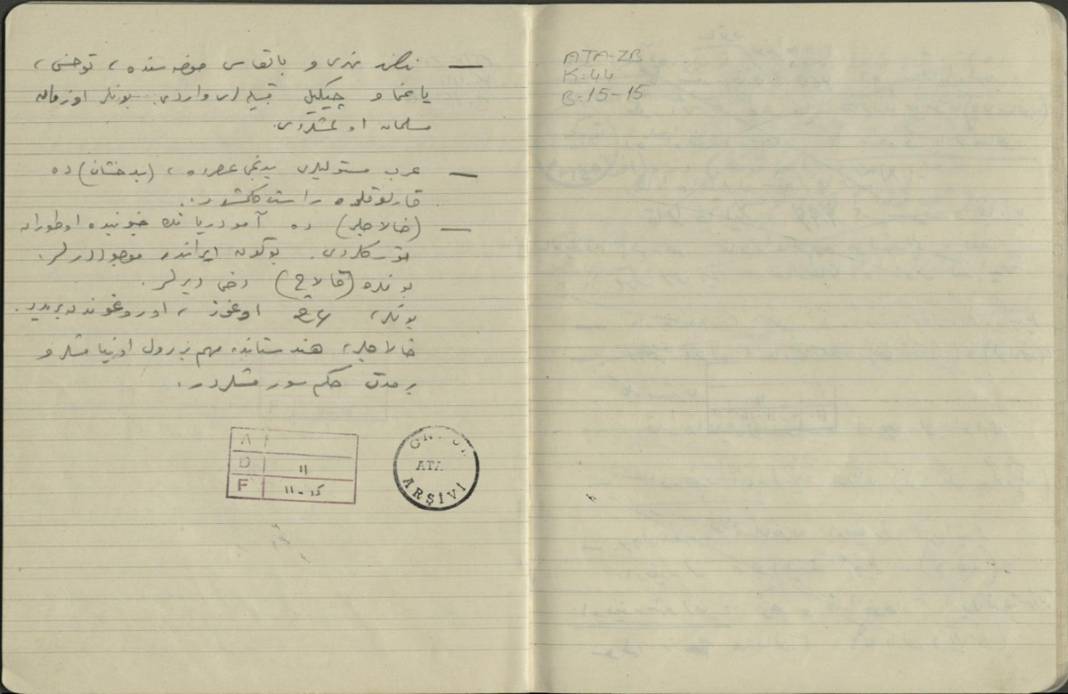 — نهری و بالقاس حوضه سنده، توخسی،
یاغما و چیگیل قبیله لری واردی. بونلر او زمان
مسلمان اولمشلردی.
— عرب مستولیلری یدنجی عصرده، (بدخشان) ده
قارلوقلره راست كلمشلردر.
— (خالاجلر) ده آمودریا نك جنوبنده اوطوران
تورکلردی. بوکون ایرانده موجوددرلر.
بونلره (قالاچ) دخی دیرلر.
بونلر، ٢٤ اوغوز، اوروغوندندر.
خالاجلر، هندستانده مهم بر رول اوینامشلر و
بر مدت حکم سورمشلردر.
A
D 11
F 11-15
ATA
ARŞİVİ
ATA-ZB
K:44
B-15-15